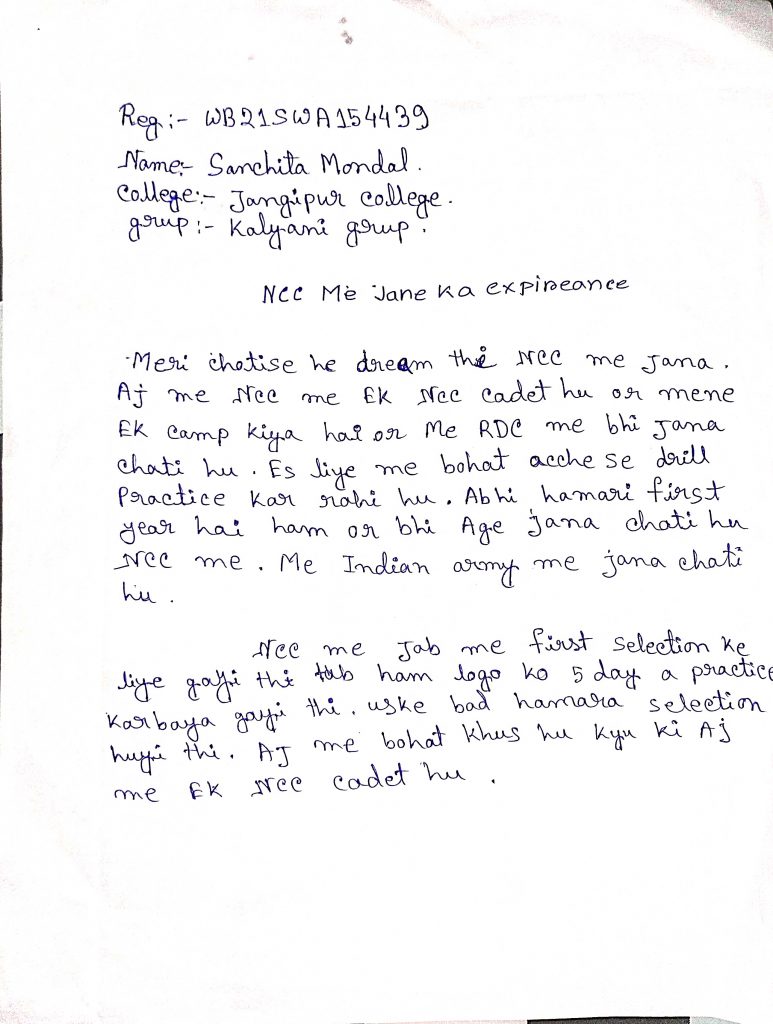 Reg:- WB21SWA154439
Name:- Sanchita Mondal.
College:- Jangipur college.
grup:- Kalyani grup.
NCC Me Jane Ka expireance
Meri chotise he dream thi NCC me Jana.
Aj me NCC me EK NCC cadet hu or mene
EK camp kiya hai or Me RDC me bhi Jana
chati hu. Es liye me bohat acche se drill
Practice kar rahi hu. Abhi hamari first
year hai ham or bhi Age jana chati hu
NCC me. Me Indian army me jana chati
hu.
NCC me Jab me first selection ke
liye gayi thi tab ham logo ko 5 day a practice
Karbaya gayi thi. uske bad hamara selection
huyi thi. AJ me bohat khus hu kyu ki Aj
me EK NCC cadet hu.